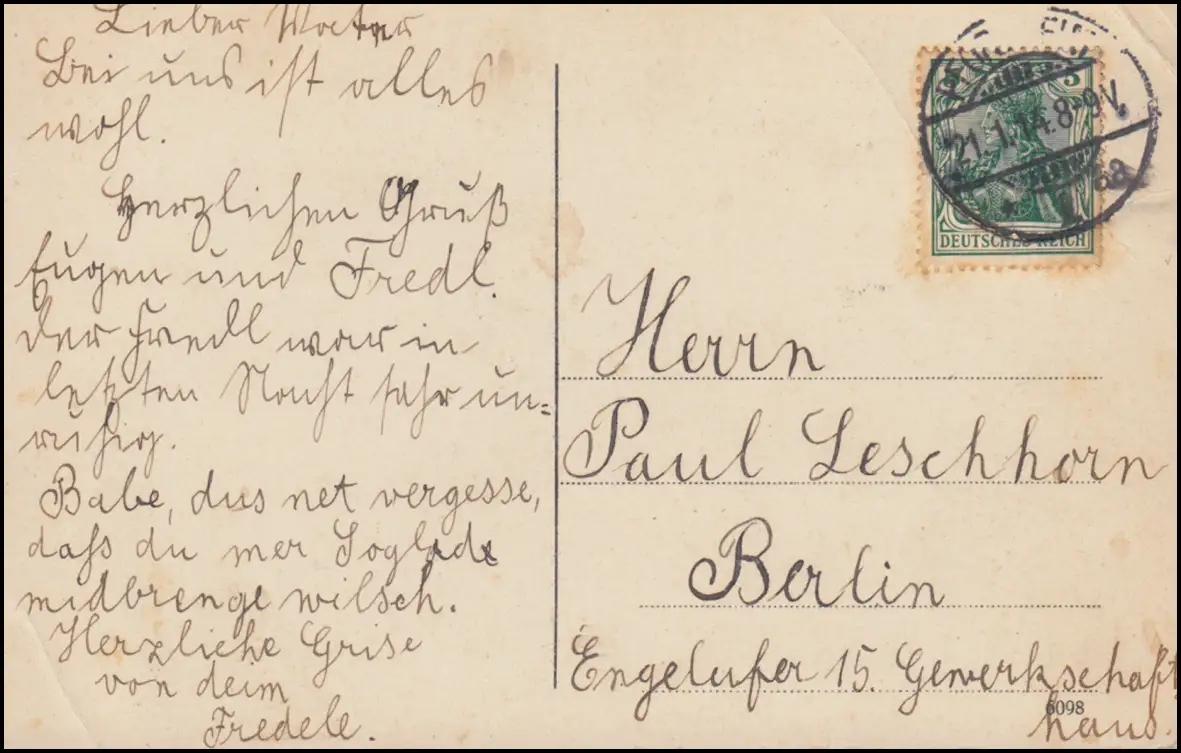 Lieber Water
Bei uns ist alles
wohl.
Herzlichen Gruß
Eugen und Fredl.
Der Fredl war in
letzten Nacht sehr un=
ruhig.
Babe, dus net vergesse,
daß du mer
midbrenge wilsch.
Herzliche Grise
von deim
Fredele.
5
21.1.14.8-9V.
DEUTSCHES REICH
Herrn
Paul Leschhorn
Berlin
Engelufer 15. Gewerkschaft
haus.
6098